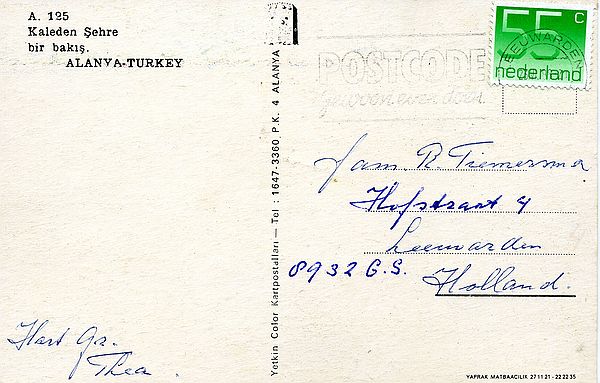 A. 125
Kaleden Şehre
bir bakış.
ALANYA-TURKEY
55 c
nederland
LEEUWARDEN
POSTCODE
gewoon even doen.
Fam R. Tiemersma
Hofstraat 4
Leewarden
8932 G.S.
Holland.
Hart Gr.
Thea.
Yetkin Color Kartpostalları — Tel : 1647-3360 P.K. 4 ALANYA
YAPRAK MATBAACILIK 27 11 21 - 22 22 35